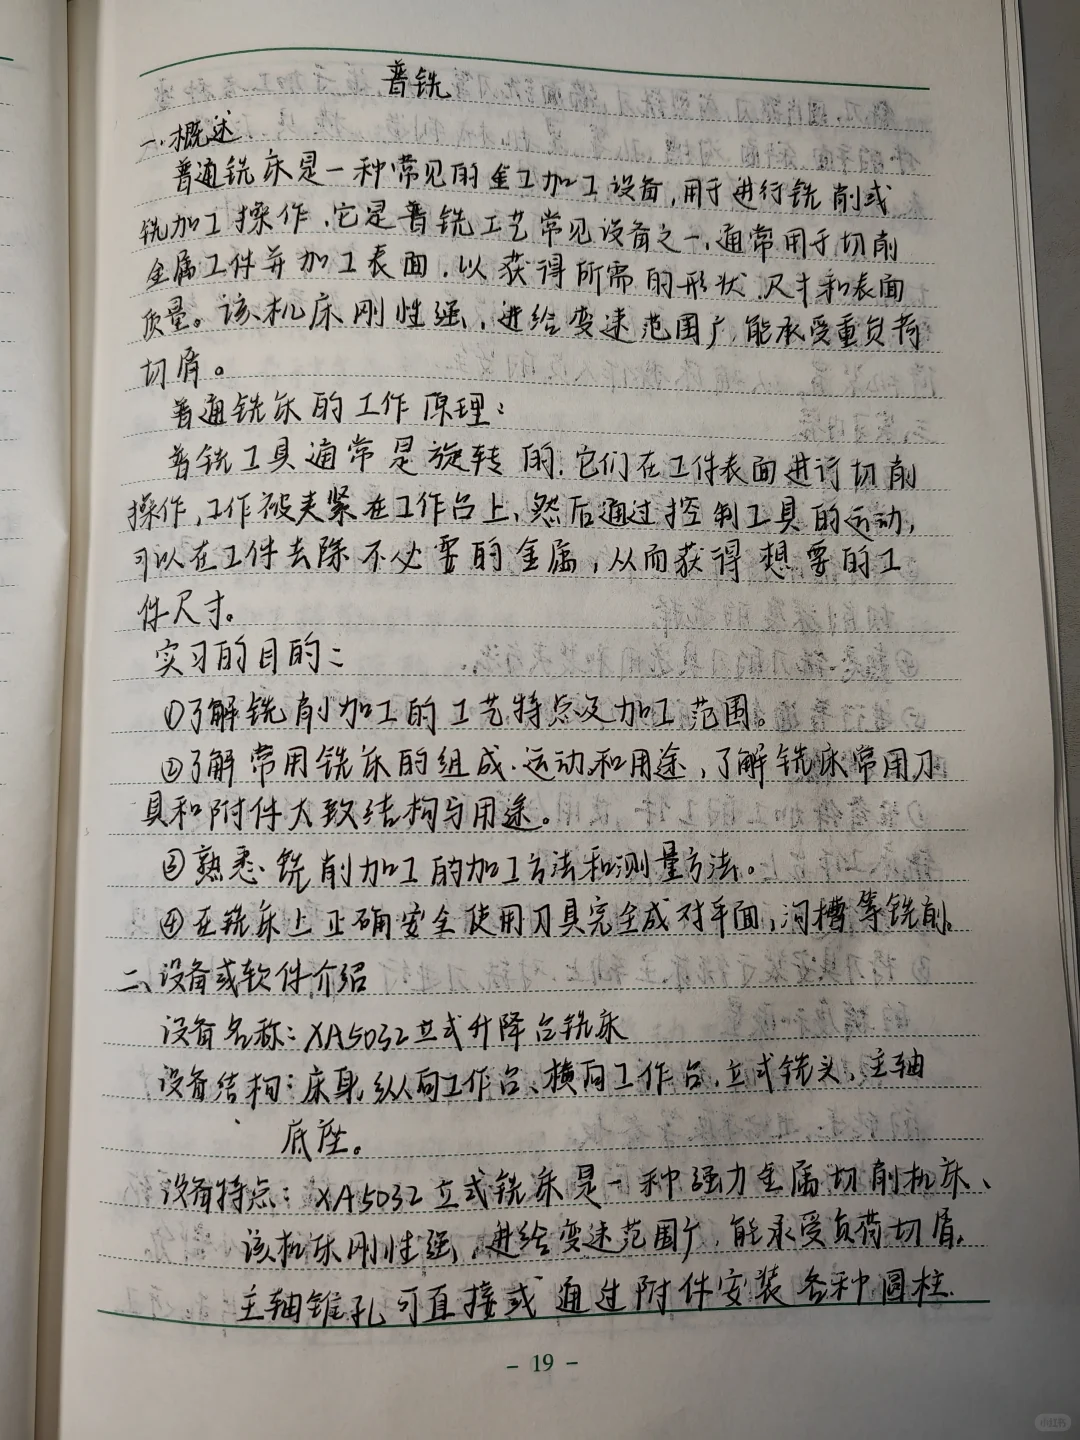 普铣
一.概述
普通铣床是一种常见的金工加工设备,用于进行铣削或
铣加工操作.它是普铣工艺常见设备之一,通常用于切削
金属工件并加工表面.以获得所需的形状.尺寸和表面
质量。该机床刚性强,进给变速范围广,能承受重负荷
切屑。
普通铣床的工作原理:
普铣工具通常是旋转的.它们在工件表面进行切削
操作,工作被夹紧在工作台上,然后通过控制工具的运动,
可以在工件去除不必要的金属,从而获得想要的工
件尺寸。
实习的目的:
①了解铣削加工的工艺特点及加工范围。
②了解常用铣床的组成.运动和用途,了解铣床常用刀
具和附件大致结构与用途。
③熟悉铣削加工的加工方法和测量方法。
④在铣床上正确安全使用刀具完全成对平面,沟槽等铣削。
二、设备或软件介绍
设备名称:XA5032立式升降台铣床
设备结构:床身,纵向工作台、横向工作台.立式铣头、主轴
底座。
设备特点:XA5032立式铣床是一种强力金属切削机床、
该机床刚性强,进给变速范围广,能承受负荷切屑.
主轴锥孔可直接或通过附件安装各种圆柱
- 19 -
小红书